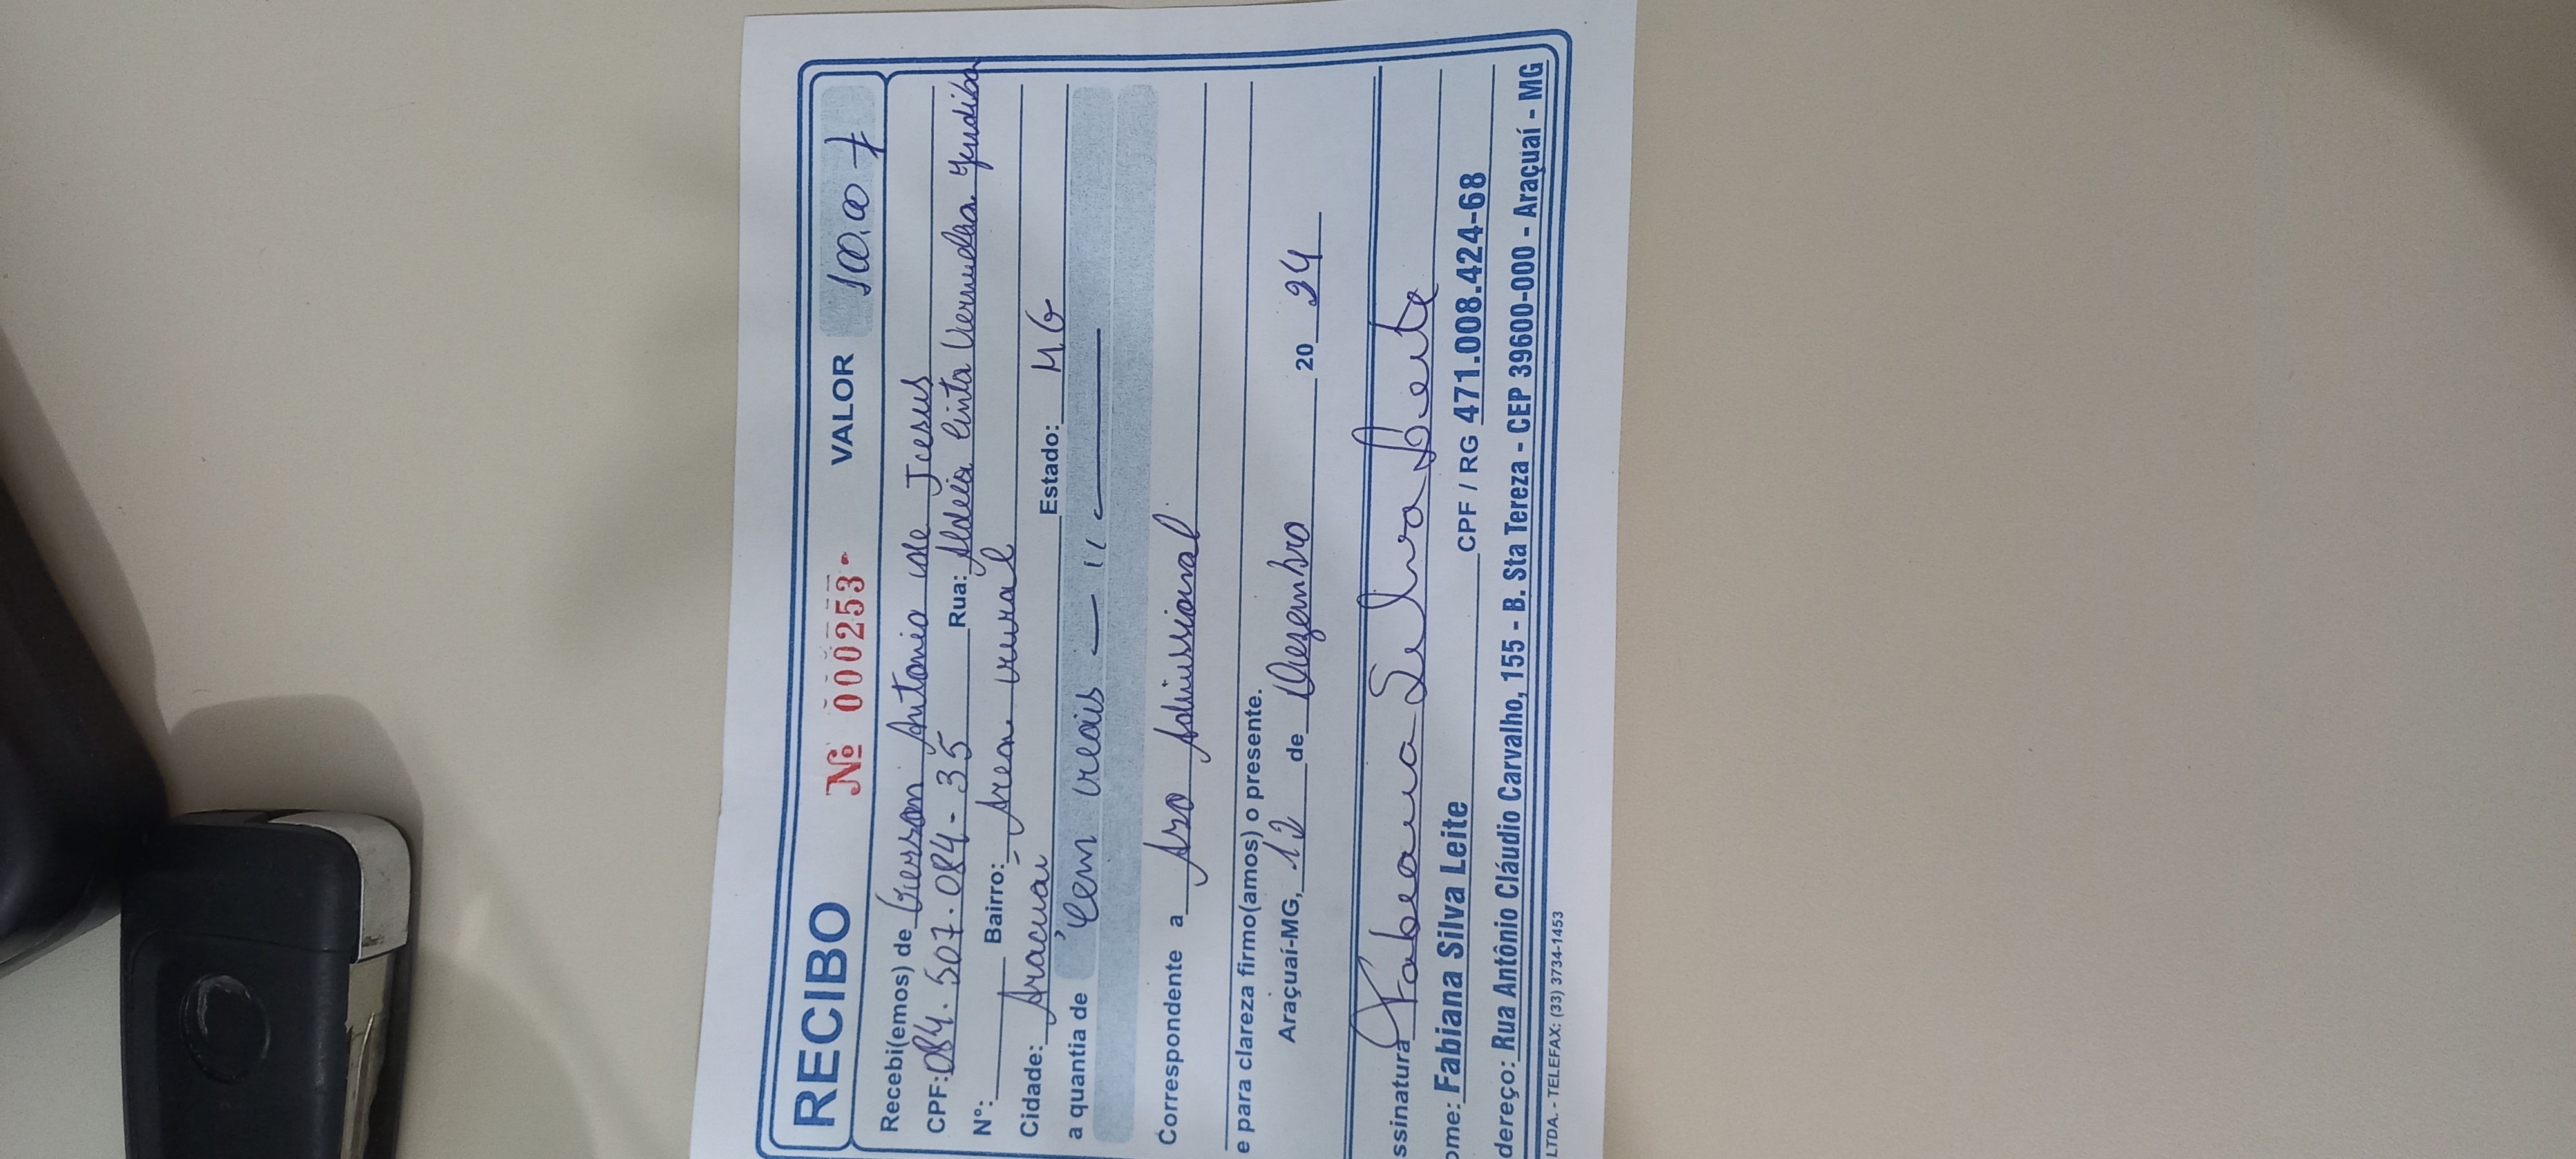 RECIBO Nº 000253 VALOR 100,00
Recebi(emos) de Gerson Antonio de Jesus
CPF: 084.507.084-35 Rua: Aldeia Cinta Vermelha Jundiba
Nº: Bairro: Área rural
Cidade: Araçuaí Estado: MG
a quantia de Cem reais
Correspondente a Aso Admissional
e para clareza firmo(amos) o presente.
Araçuaí-MG, 12 de Dezembro 20 24
ssinatura Fabiana Silva Leite
ome: Fabiana Silva Leite CPF / RG 471.008.424-68
dereço: Rua Antônio Cláudio Carvalho, 155 - B. Sta Tereza - CEP 39600-000 - Araçuaí - MG
LTDA. - TELEFAX: (33) 3734-1453